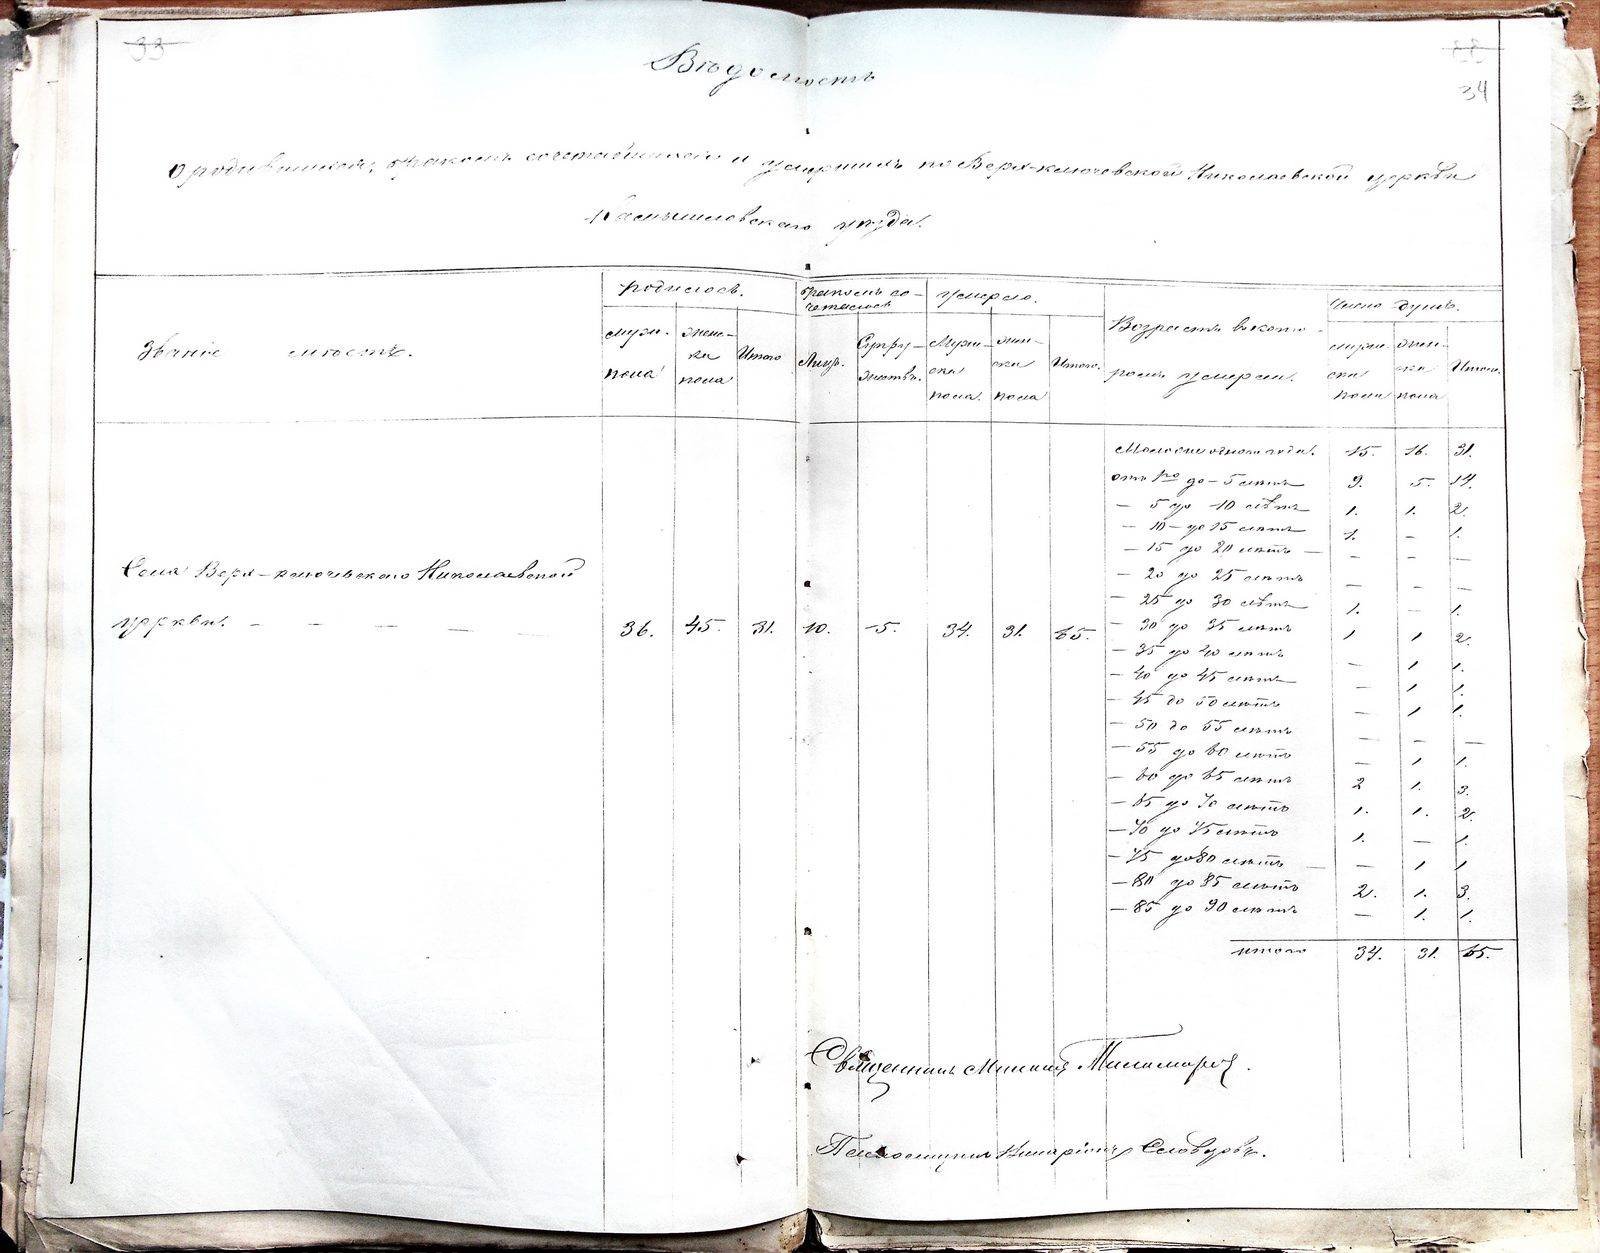 33
34
Вѣдомость
о родившихся, бракомъ сочетавшихся и умершихъ по Верх-ключевской Николаевской церкви
Камышловскаго уѣзда.
Званіе мѣстъ.
родилось.
муж. пола
женска пола
Итого
бракомъ сочеталось
Лицъ.
Супружествъ.
умерло.
Мужска пола.
женска пола
Итого.
Возрастъ въ которомъ умерли.
Число душъ.
мужска пола
женска пола
Итого.
Села Верх-ключевскаго Николаевской
церкви. — — — — —
36. 45. 31. 10. 5. 34. 31. 65.
Моложе одного года. 15. 16. 31.
отъ 1го до 5 лѣтъ 9. 5. 14.
— 5 до 10 лѣтъ 1. 1. 2.
— 10 до 15 лѣтъ 1. — 1.
— 15 до 20 лѣтъ — — — —
— 20 до 25 лѣтъ — — —
— 25 до 30 лѣтъ 1. — 1.
— 30 до 35 лѣтъ 1 1 2.
— 35 до 40 лѣтъ — 1 1.
— 40 до 45 лѣтъ — 1 1.
— 45 до 50 лѣтъ — 1 1.
— 50 до 55 лѣтъ — — —
— 55 до 60 лѣтъ — 1 1.
— 60 до 65 лѣтъ 2 1. 3.
— 65 до 70 лѣтъ 1. 1. 2.
— 70 до 75 лѣтъ 1. — 1.
— 75 до 80 лѣтъ — — 1 1
— 80 до 85 лѣтъ 2. 1. 3.
— 85 до 90 лѣтъ — 1. 1.
итого 34. 31. 65.
Священникъ
Псаломщикъ Словцовъ.